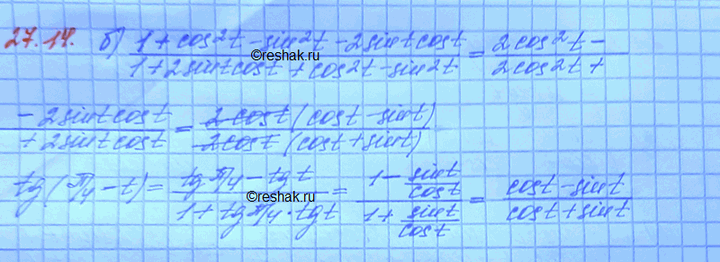 27.14. б) (1 + cos²t - sin²t - 2sint cost)/(1 + 2sint cost + cos²t - sin²t) = (2cos²t -)/(2cos²t +)
©reshak.ru
(- 2sint cost)/(+ 2sint cost) = (2cost (cost - sint))/(2cost (cost + sint))
tg(π/4 - t) = (tg π/4 - tg t)/(1 + tg π/4 · tgt) = (1 - sint/cost)/(1 + sint/cost) = (cost - sint)/(cost + sint)
©reshak.ru